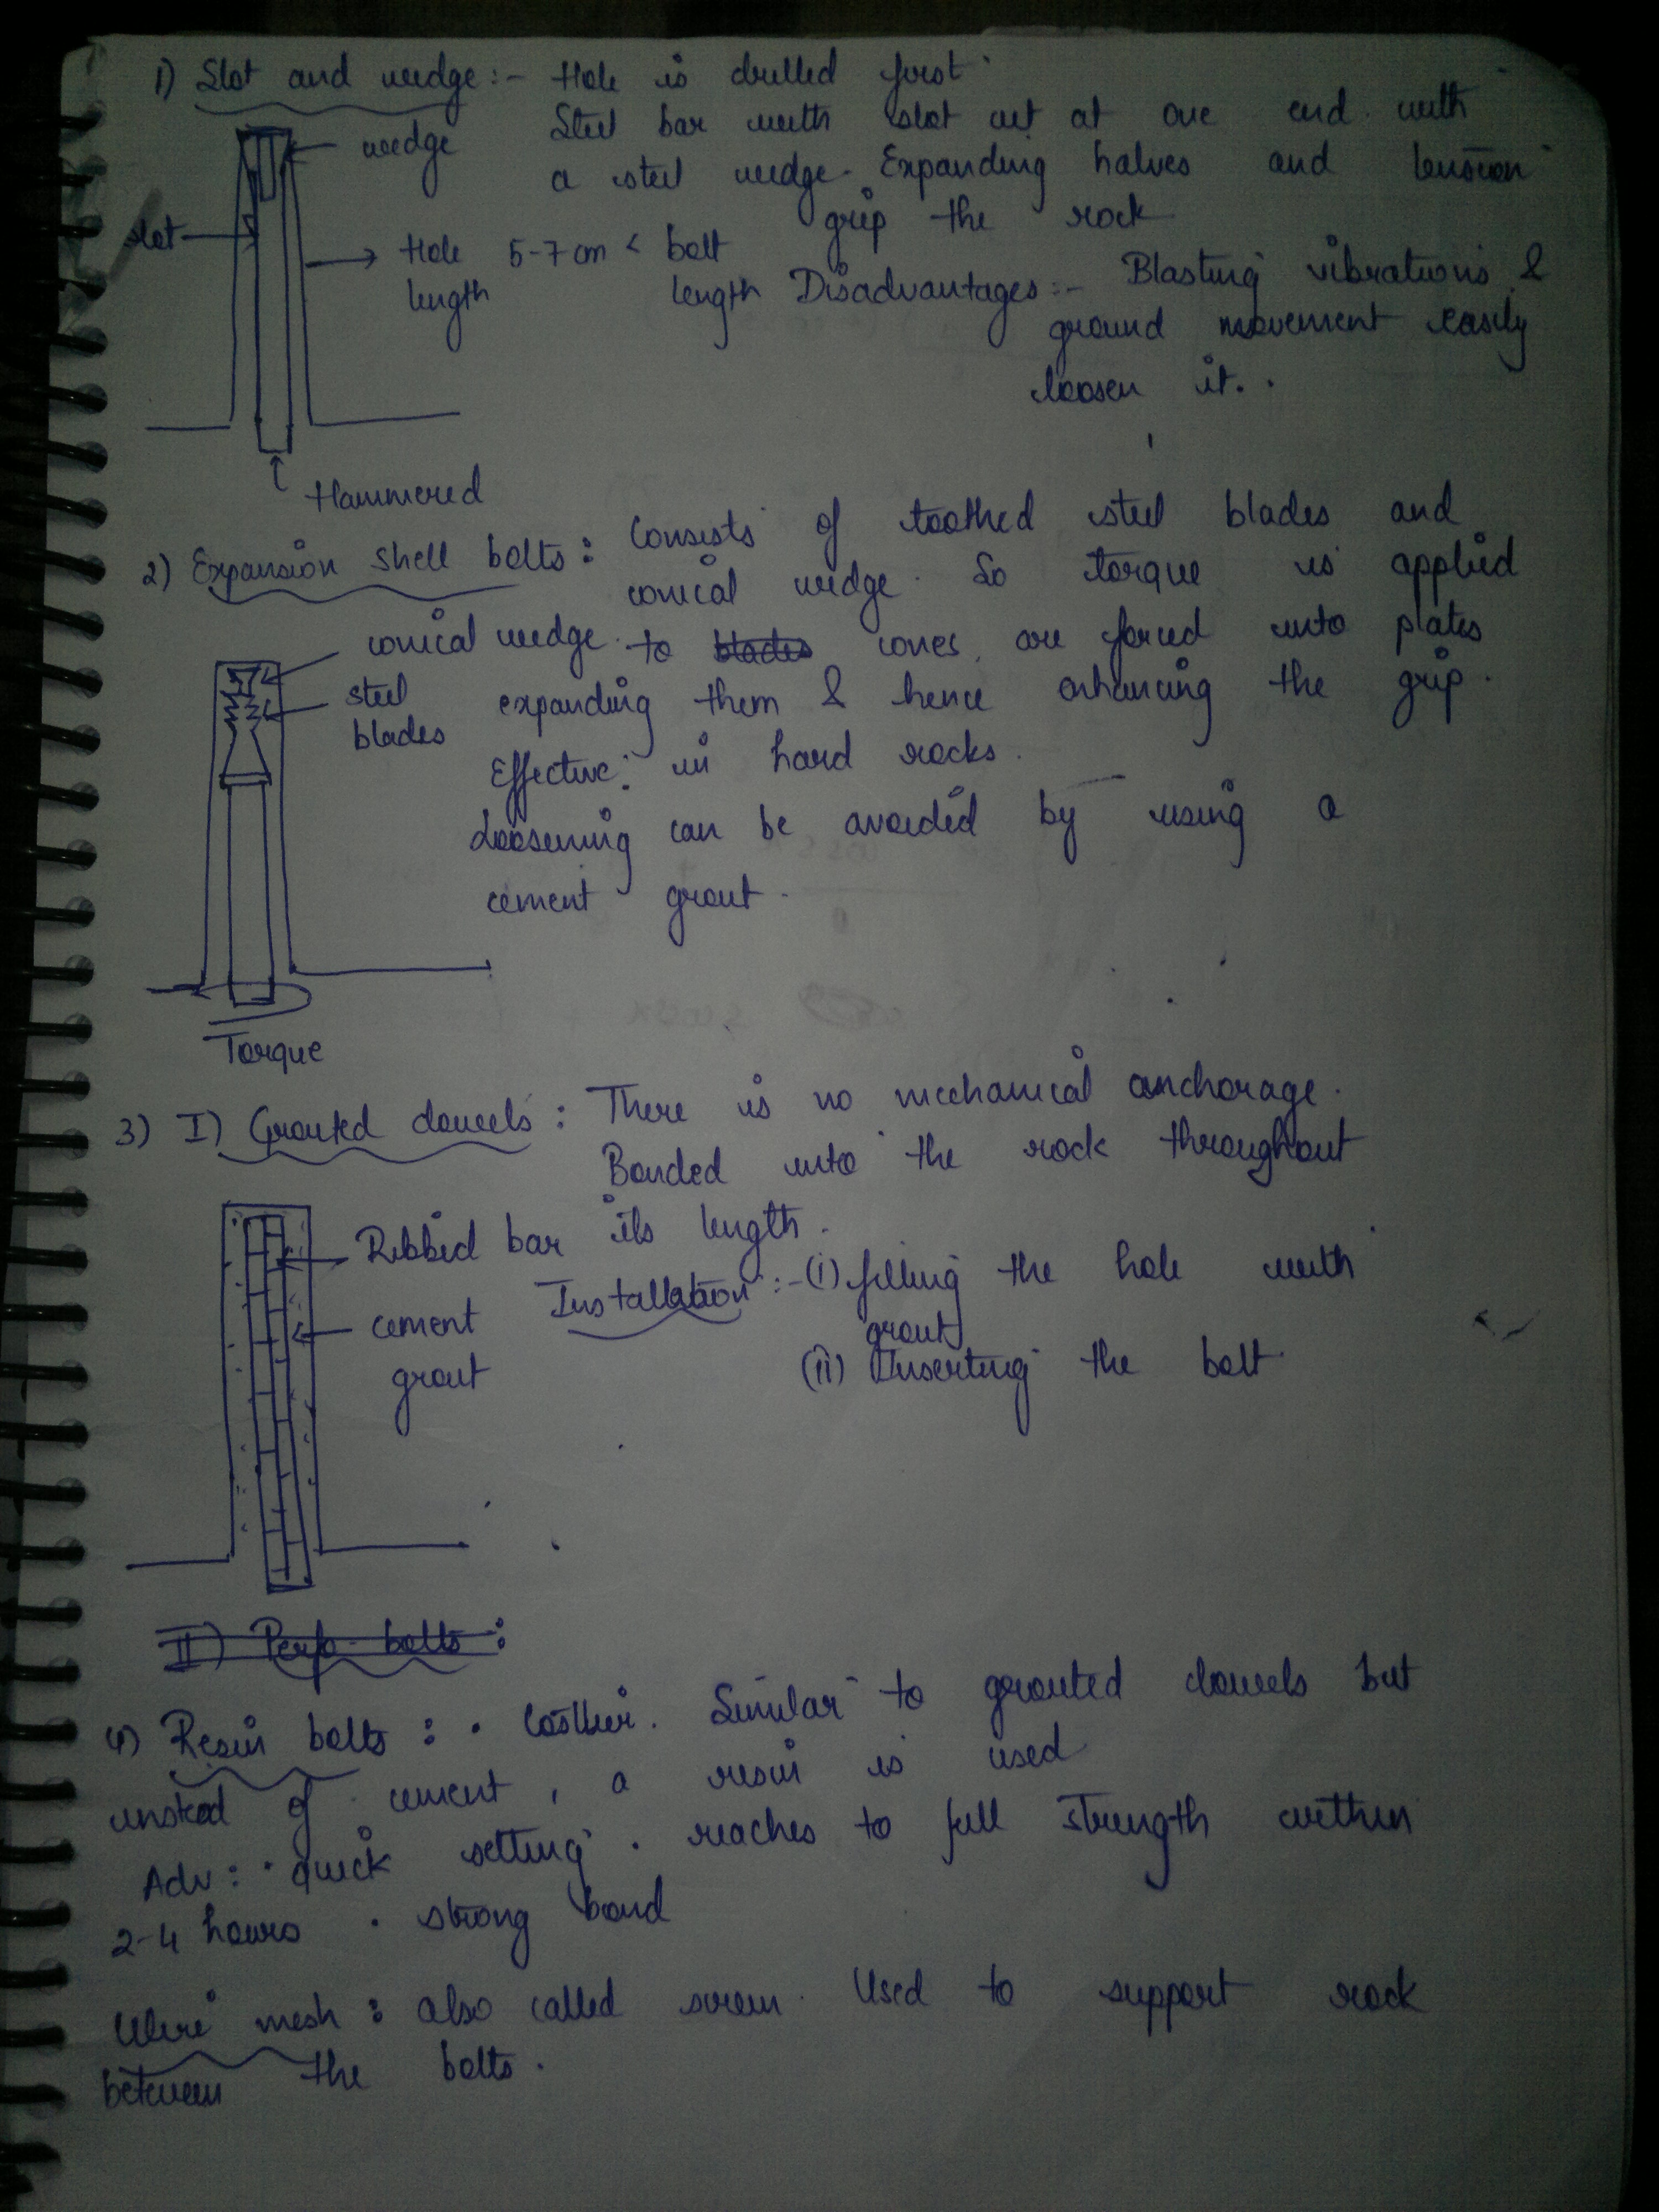 1) Slot and wedge :- Hole is drilled first
Steel bar with slot cut at one end with
wedge
a steel wedge. Expanding halves and tension
grip the rock
slot
Hole 5-7 cm < bolt
length length
Disadvantages :- Blasting vibrations &
ground movement easily
loosen it.
Hammered
2) Expansion shell bolts : Consists of toothed steel blades and
conical wedge. So torque is applied
conical wedge
to blades cones are forced into plates
steel
blades
expanding them & hence enhancing the grip.
Effective in hard rocks.
Loosening can be avoided by using a
cement grout.
Torque
3) I) Grouted dowels : There is no mechanical anchorage.
Bonded into the rock throughout
its length.
Ribbed bar
Installation :- (i) filling the hole with
grout
cement
grout
(ii) Inserting the bolt
II) Perfo bolts :
4) Resin bolts : • Costlier. Similar to grouted dowels but
instead of cement, a resin is used
Adv : • quick setting . reaches to full strength within
2-4 hours • strong bond
Wire mesh : also called screen. Used to support rock
between the bolts.